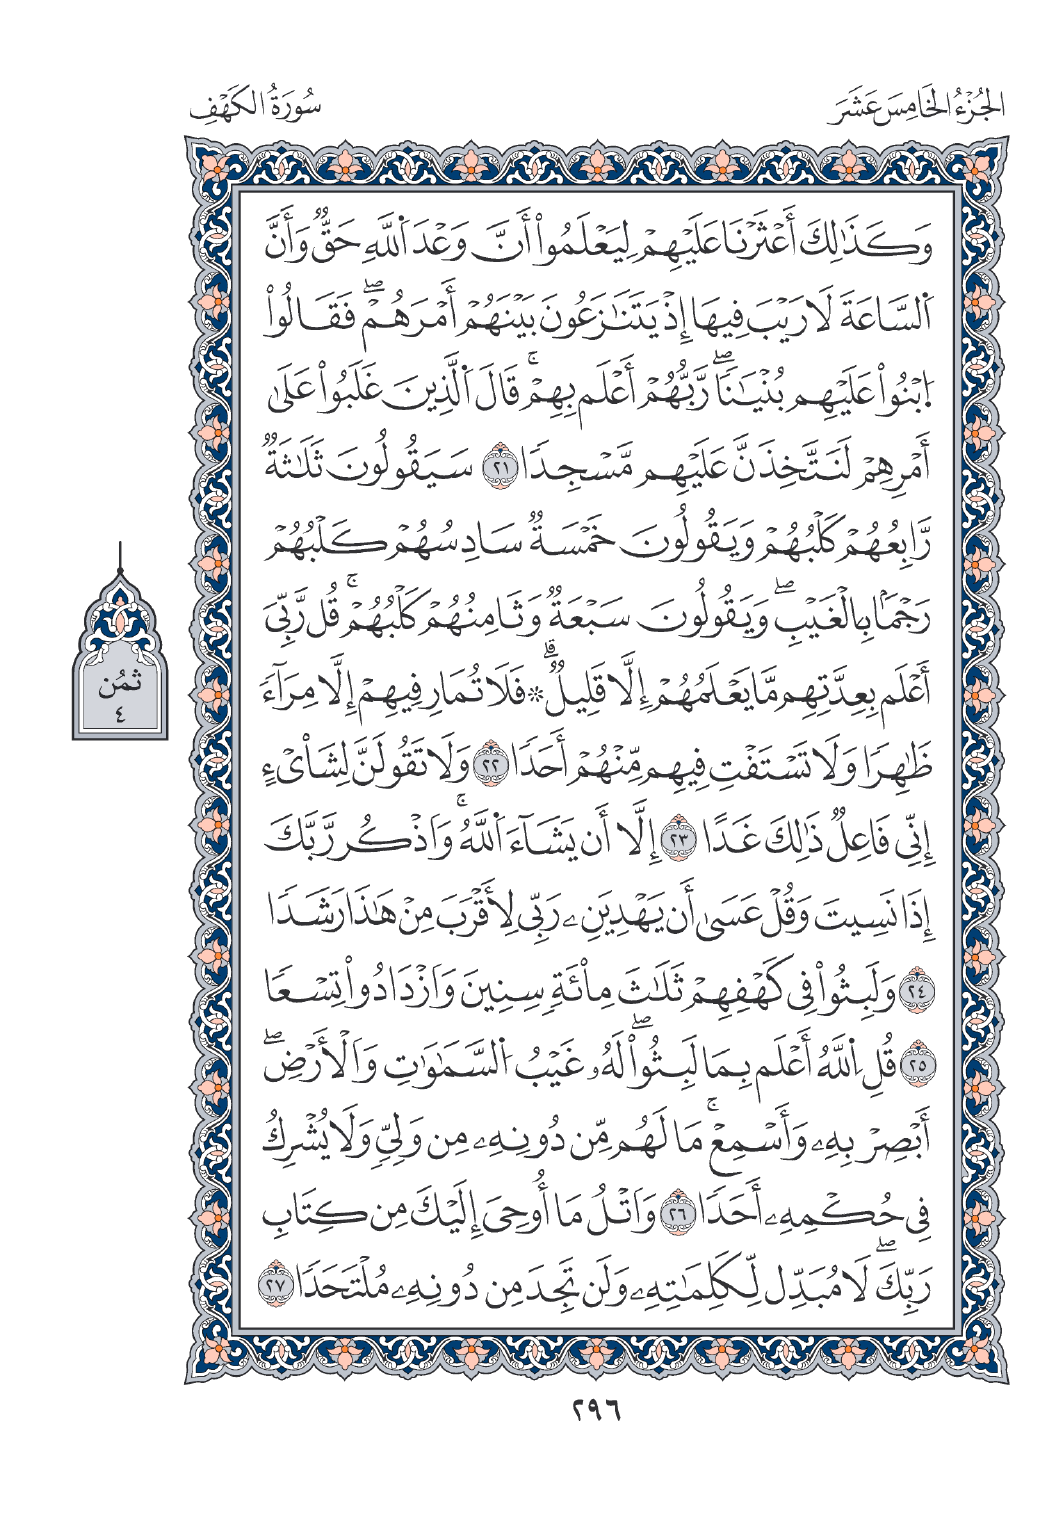 الجُزْءُ الخَامِسَ عَشَرَ
سُورَةُ الكَهْفِ
وَكَذَٰلِكَ أَعْثَرْنَا عَلَيْهِمْ لِيَعْلَمُوا۟ أَنَّ وَعْدَ اَ۬للَّهِ حَقࣱّ وَأَنَّ
اَ۬لسَّاعَةَ لَا رَيْبَ فِيهَا إِذْ يَتَنَٰزَعُونَ بَيْنَهُمْ أَمْرَهُمْۖ فَقَالُوا۟
اُ۪بْنُوا۟ عَلَيْهِم بُنْيَٰنࣰاۖ رَّبُّهُمْ أَعْلَم بِهِمْۚ قَالَ اَ۬لَّذِينَ غَلَبُوا۟ عَلَىٰ
أَمْرِهِمْ لَنَتَّخِذَنَّ عَلَيْهِم مَّسْجِدࣰا ٢١ سَيَقُولُونَ ثَلَٰثَةࣱ
رَّابِعُهُمْ كَلْبُهُمْ وَيَقُولُونَ خَمْسَةࣱ سَادِسُهُمْ كَلْبُهُمْ
رَجْمَۢا بِالْغَيْبِۖ وَيَقُولُونَ سَبْعَةࣱ وَثَامِنُهُمْ كَلْبُهُمْۚ قُل رَّبِّيَ
أَعْلَم بِعِدَّتِهِم مَّا يَعْلَمُهُمْ إِلَّا قَلِيلࣱۗ ۞ فَلَا تُمَارِ فِيهِمْ إِلَّا مِرَآءࣰ
ظَٰهِرࣰا وَلَا تَسْتَفْتِ فِيهِم مِّنْهُمْ أَحَدࣰا ٢٢ وَلَا تَقُولَنَّ لِشَا۟يْءٍ
إِنِّي فَاعِلࣱ ذَٰلِكَ غَدًا ٢٣ إِلَّا أَن يَشَآءَ اَ۬للَّهُۚ وَاَذْكُر رَّبَّكَ
إِذَا نَسِيتَ وَقُلْ عَسَىٰ أَن يَهْدِيَنِۦ رَبِّي لِأَقْرَبَ مِنْ هَٰذَا رَشَدࣰا
٢٤ وَلَبِثُوا۟ فِي كَهْفِهِمْ ثَلَٰثَ مِا۟ئَةࣲ سِنِينَ وَاَزْدَادُوا۟ تِسْعࣰا
٢٥ قُلِ اِ۬للَّهُ أَعْلَم بِمَا لَبِثُوا۟ۖ لَهُۥ غَيْبُ اُ۬لسَّمَٰوَٰتِ وَالْأَرْضِۖ
أَبْصِرْ بِهِۦ وَأَسْمِعْۚ مَا لَهُم مِّن دُونِهِۦ مِن وَلِيࣲّ وَلَا يُشْرِكُ
فِي حُكْمِهِۦ أَحَدࣰا ٢٦ وَاَتْلُ مَا أُوحِيَ إِلَيْكَ مِن كِتَابِ
رَبِّكَۖ لَا مُبَدِّل لِّكَلِمَٰتِهِۦ وَلَن تَجِدَ مِن دُونِهِۦ مُلْتَحَدࣰا ٢٧
ثمُن
٤
٢٩٦